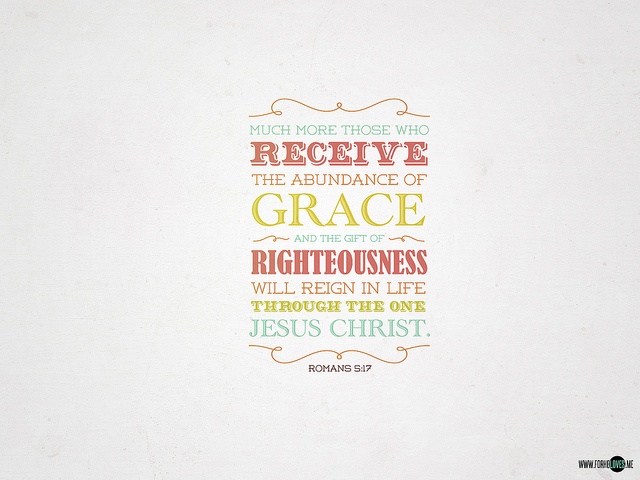 MUCH MORE THOSE WHO
RECEIVE
THE ABUNDANCE OF
GRACE
AND THE GIFT OF
RIGHTEOUSNESS
WILL REIGN IN LIFE
THROUGH THE ONE
JESUS CHRIST.
ROMANS 5:17
WWW.FORHELOVES.ME